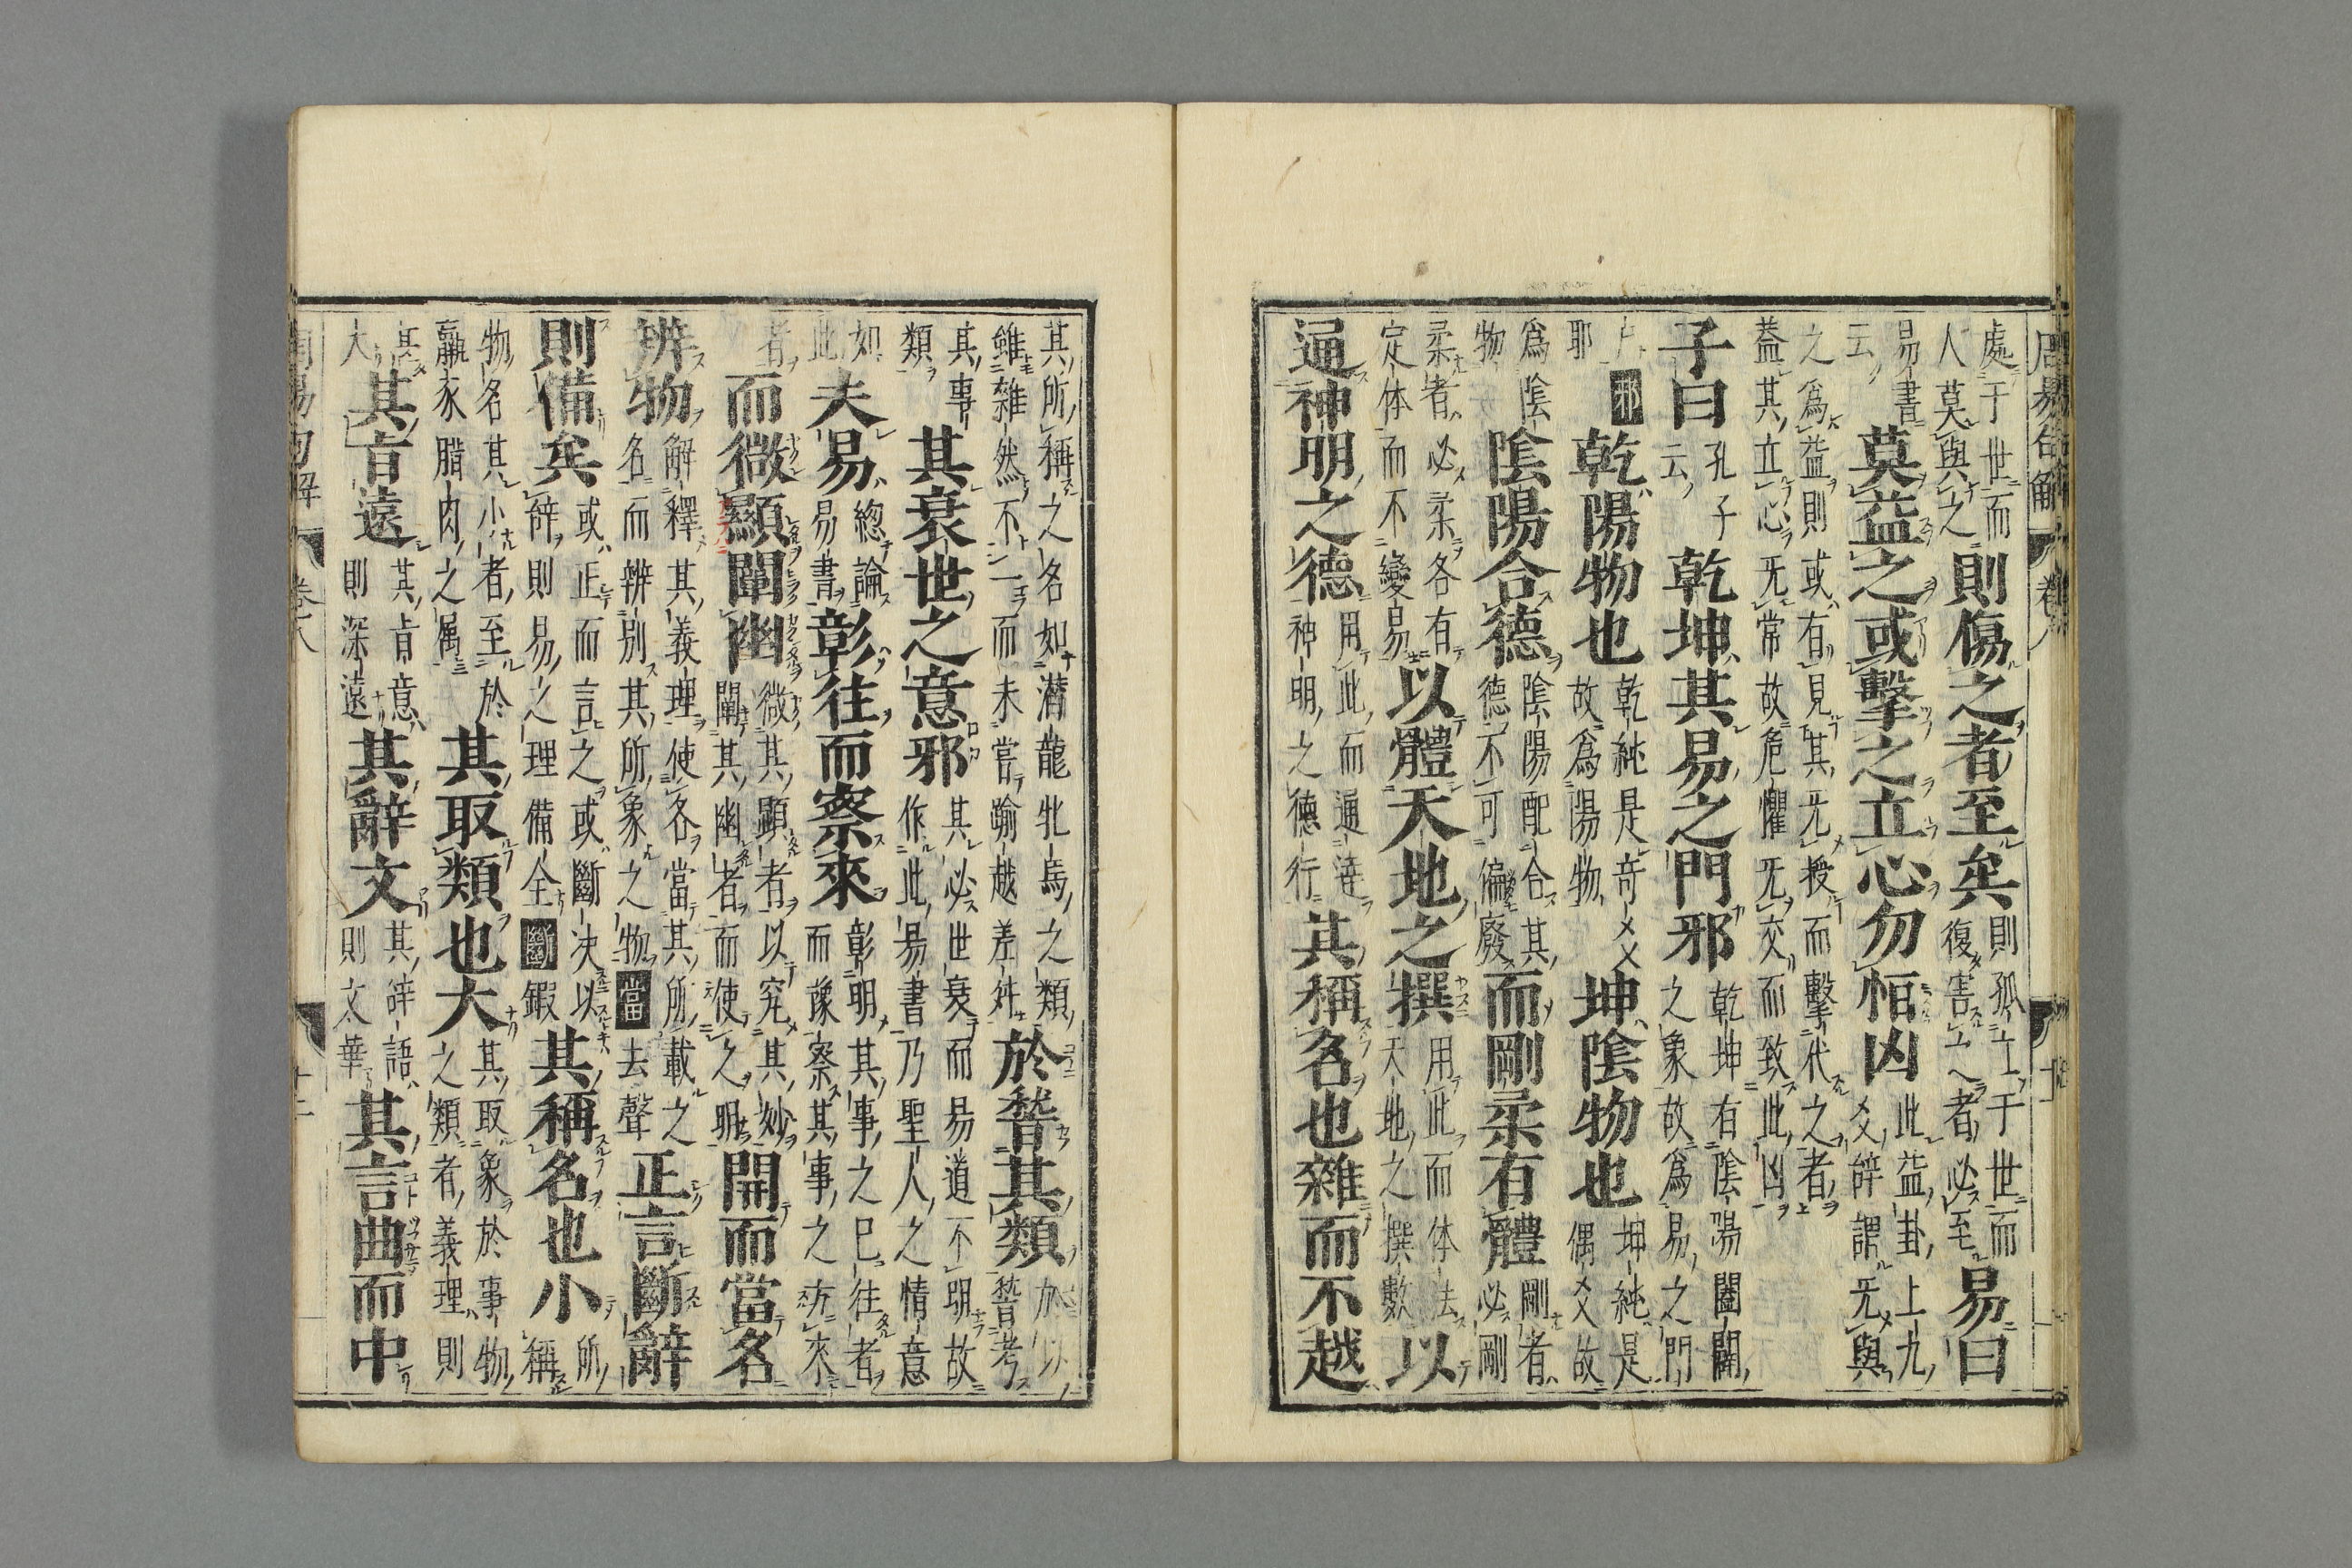 周易句解 卷八 十一
處于世而人莫與之則傷之者至矣則孤立于世而復害之者必至易曰
易書云莫益之或擊之立心勿恒凶此益卦上九爻辞謂无與
之爲益則或有見其无授而擊代之者蓋其立心无常故危懼无交而致此凶
子曰孔子云乾坤其易之門邪乾坤有陰陽闔闢之象故爲易之門
户邪耶乾陽物也乾純是奇爻故爲陽物坤陰物也坤純是偶爻故
爲陰物陰陽合德陰陽配合其德不可偏廢而剛柔有體剛者必剛
柔者必柔各有定体而不變易以體天地之撰用此而体法天地之撰數以
通神明之德用此而通達神明之德行其稱名也雜而不越
其所稱之名如潜龍牝馬之類雖雜然不一而未嘗踰越差舛於稽其類於以稽考
其事類其衰世之意邪其必世衰而易道不明故作此易書乃聖人之情意
如此夫易緫論易書彰往而察來彰明其事之已往者而豫察其事之方來
者而微顯闡幽微其顯者以究其妙闡其幽者而使之明開而當名
辨物解釋其義理使各當其所載之名而辨別其所象之物當去聲正言斷辭
則備矣或正而言之或斷决以辞則易之理備全斷鍜其稱名也小所稱
物名其小者至於羸豕腊肉之属其取類也大其取象於事物之類者義理則
甚大其旨遠其旨意則深遠其辭文其辞語則文華其言曲而中
周易句解 卷八 十二